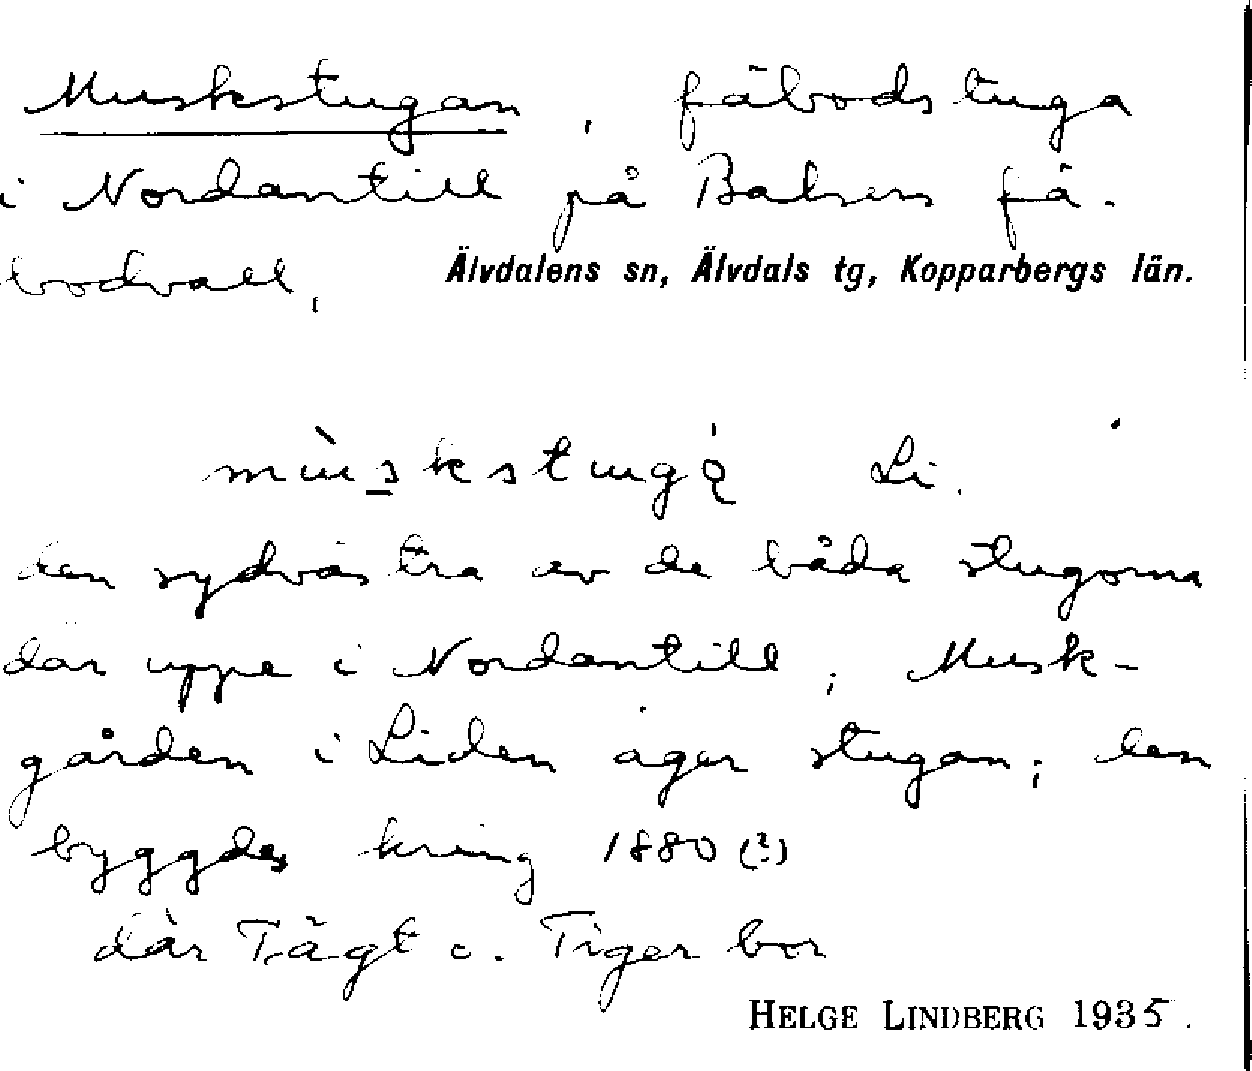 Muskstugan, fäbodstuga
i Nordantill på Balsers fä-
bodvall,
Älvdalens sn, Älvdals tg, Kopparbergs län.
Li.
den sydvästra av de båda stugorna
där uppe i Nordantill; Musk-
gården i Liden äger stugan; den
byggdes kring 1880 (?)
där Tägt o. Tiger bor
HELGE LINDBERG 1935.